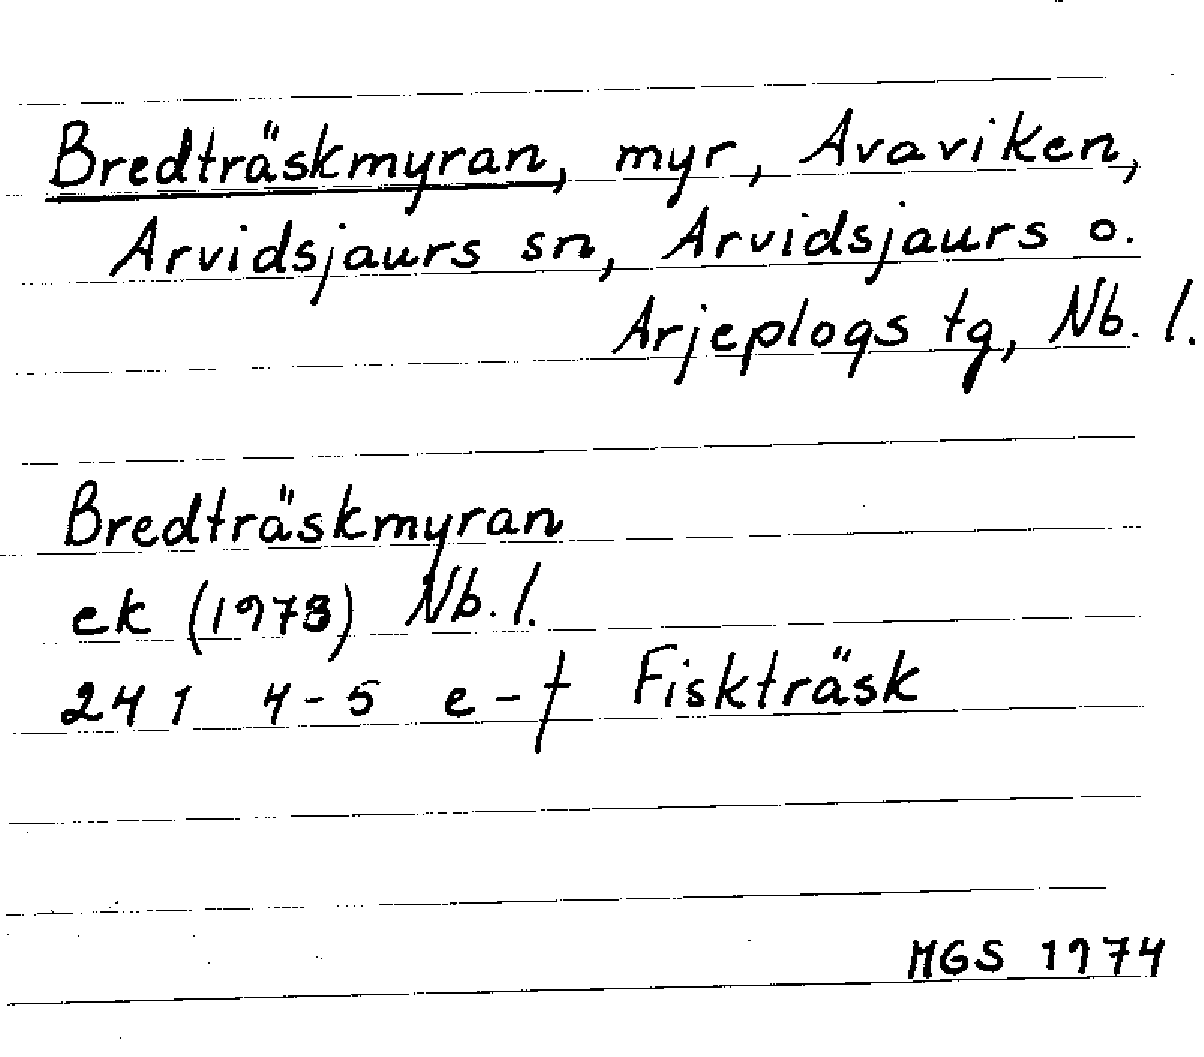 Bredträskmyran, myr, Avaviken,
Arvidsjaurs sn, Arvidsjaurs o.
Arjeplogs tg, Nb. l.
Bredträskmyran
ek (1973) Nb. l.
241 4-5 e-f Fiskträsk
MGS 1974